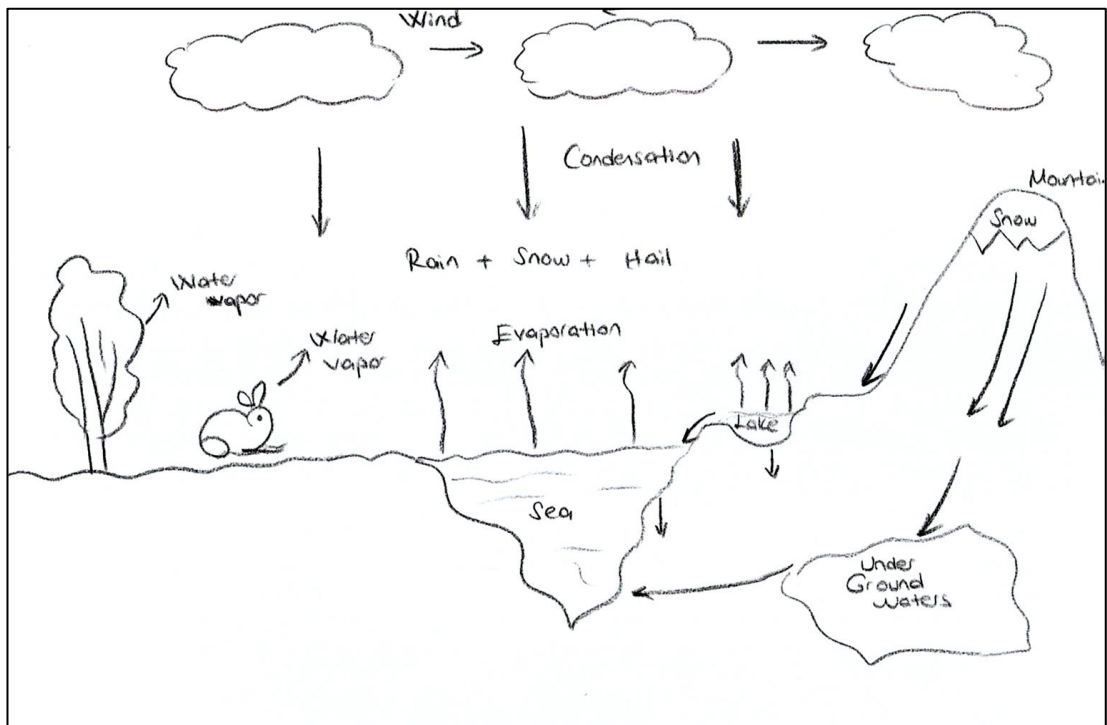 Wind
Condensation
Mountai
Snow
Rain + Snow + Hail
Water
vapor
Water
vapor
Evaporation
Lake
Sea
Under
Ground
Waters